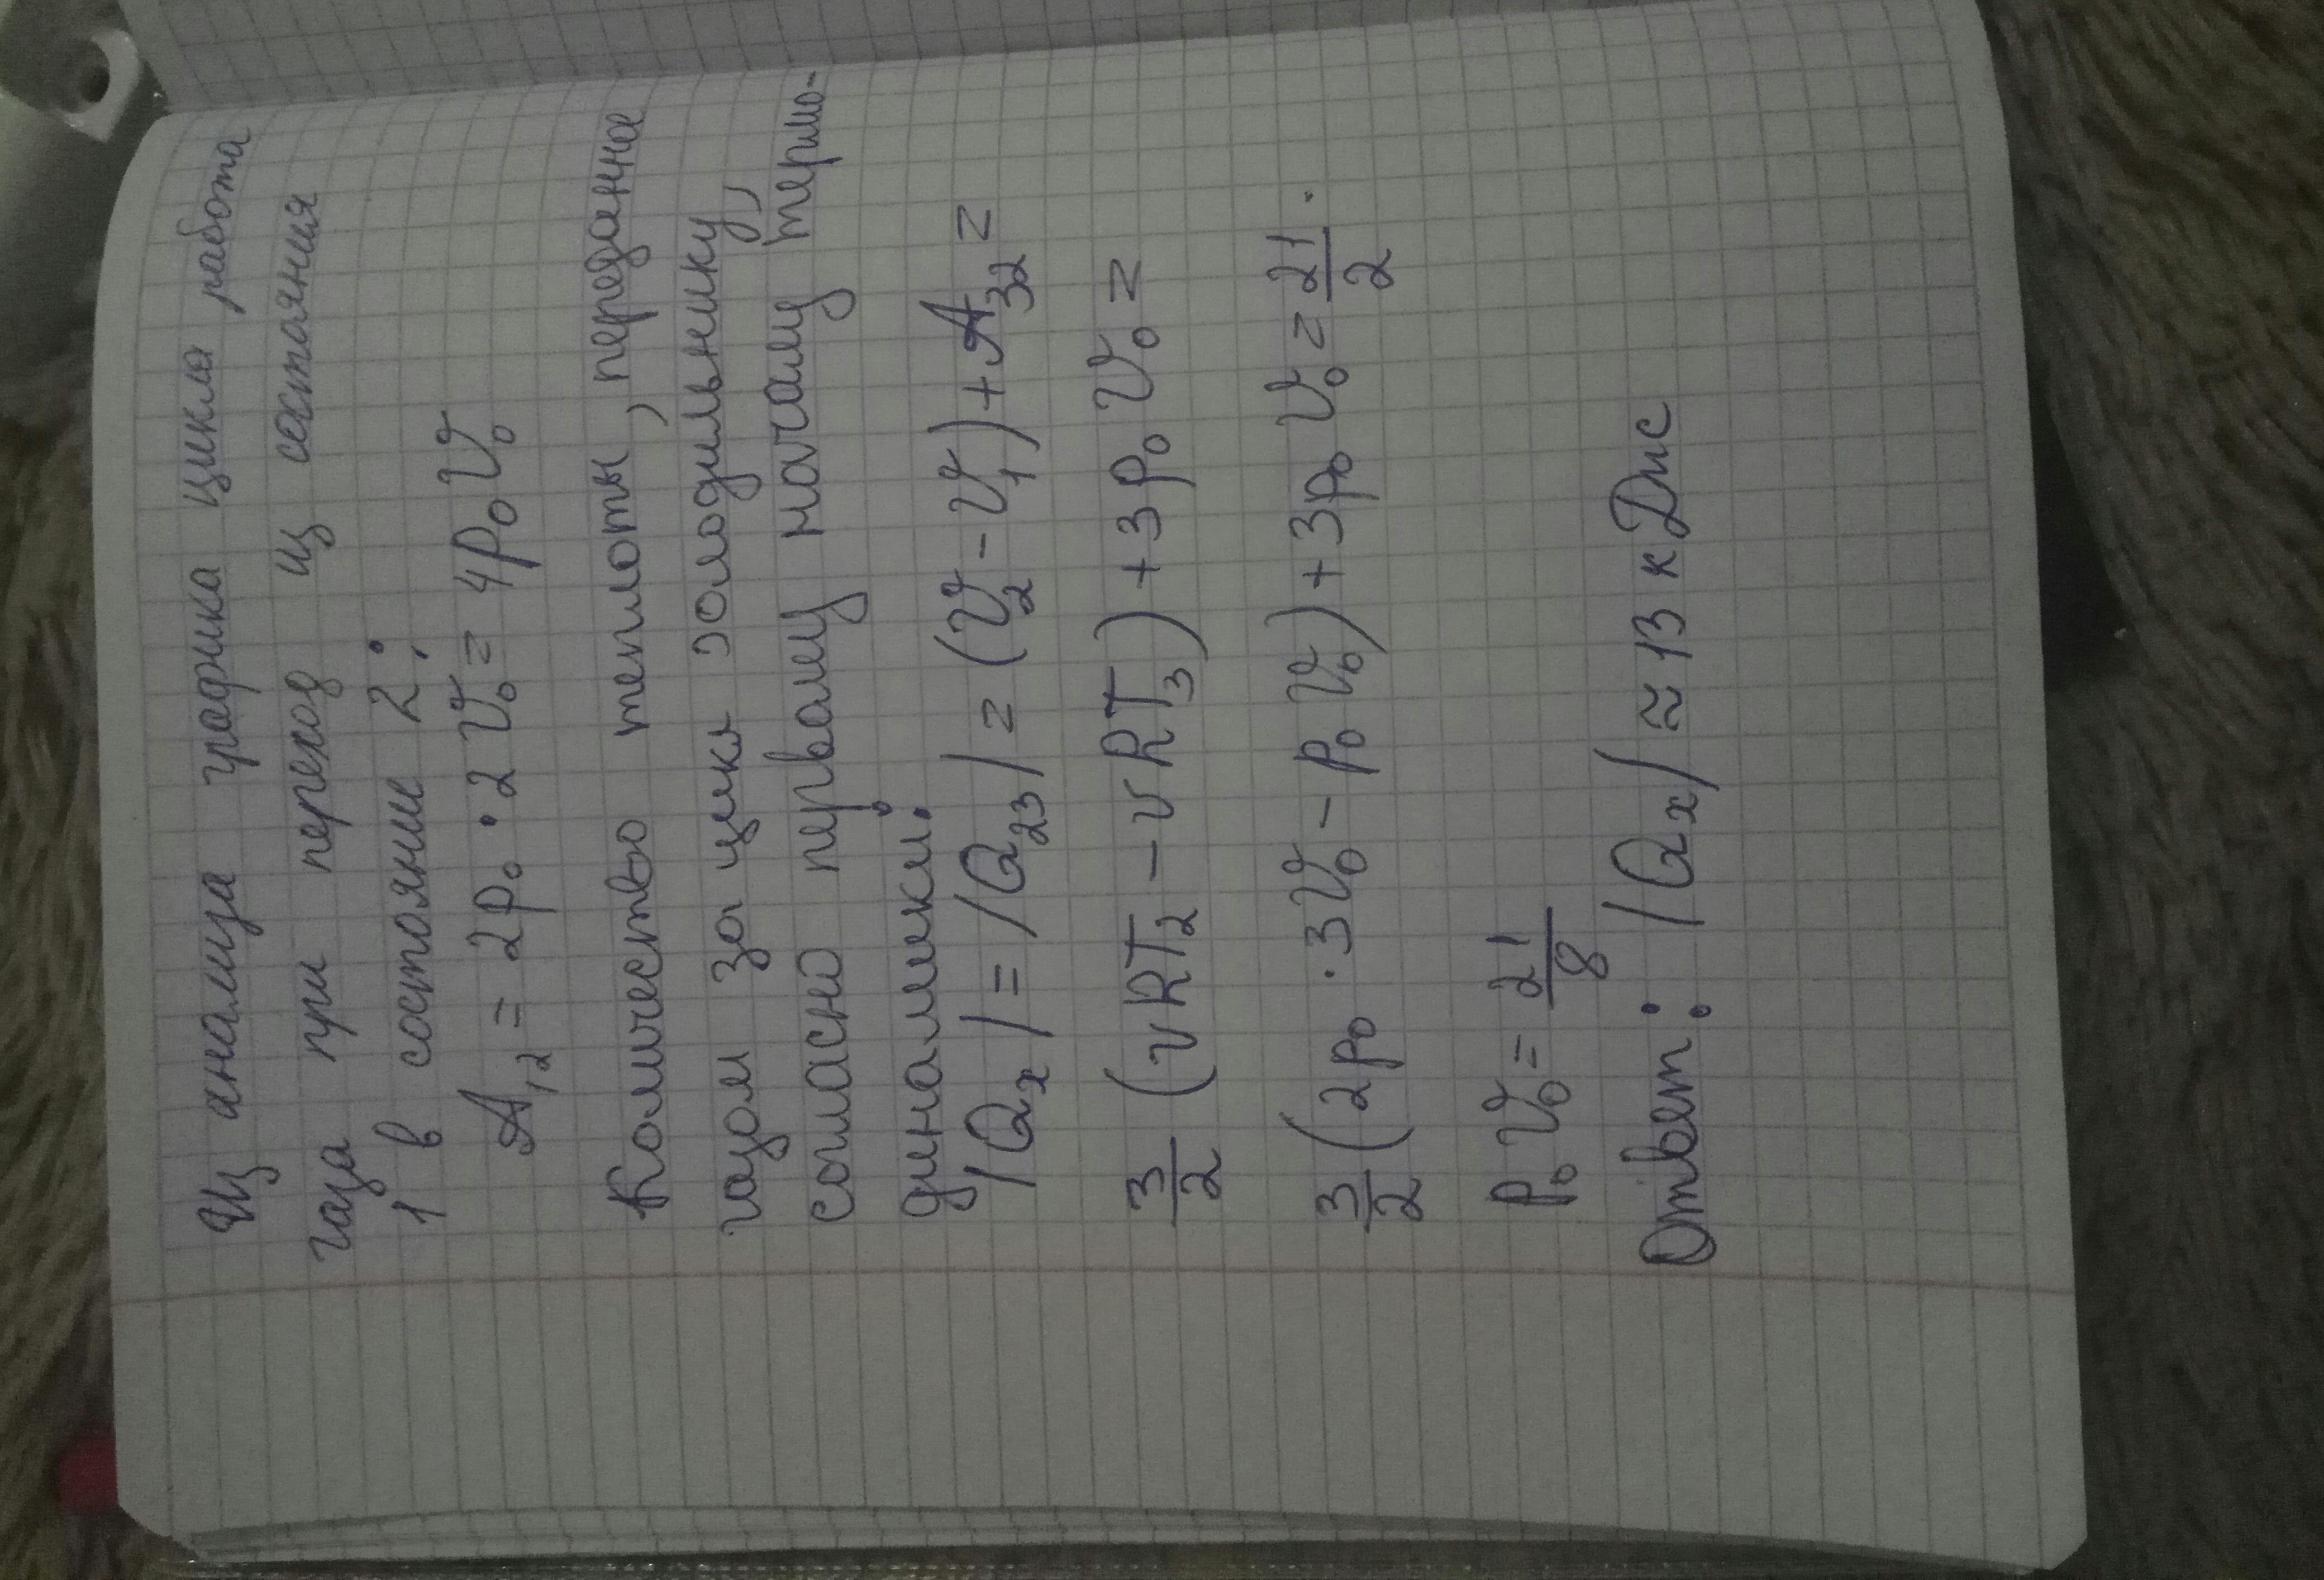 Из анализа графика цикла работа
газа при переход из состаяния
1 в состояние 2:
A₁₂ = 2p₀ · 2V₀ = 4p₀V₀
Количество теплоты, переданное
газом за цикл холодильнику,
согласно первому началу термо-
динамики:
|Qₓ| = |Q₂₃| = (V₂ - V₁) + A₃₂ =
3/2 (νRT₂ - νRT₃) + 3p₀V₀ =
3/2 (2p₀ · 3V₀ - p₀V₀) + 3p₀V₀ = 21/2 ·
p₀V₀ = 21/8
Ответ: |Qₓ| ≈ 13 кДж